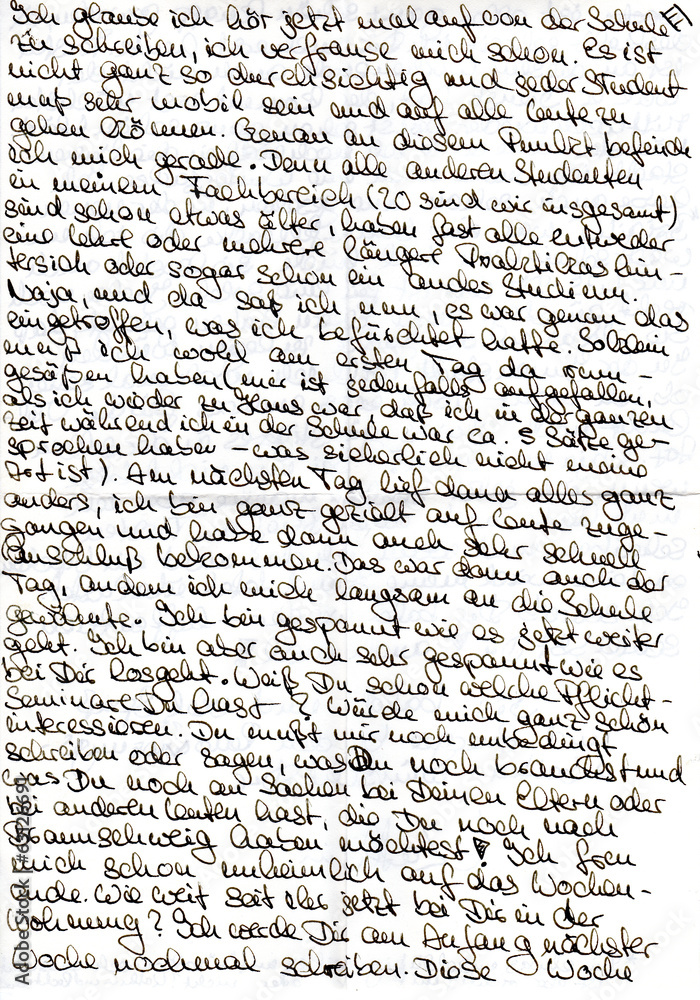 Ich glaube ich hör jetzt mal auf von der Schule
zu schreiben, ich verfranse mich schon. Es ist
nicht ganz so durchsichtig und jeder Student
muß sehr mobil sein und auf alle Leute zu
gehen können. Genau an diesem Punkt befinde
ich mich gerade. Denn alle anderen Studenten
in meinem Fachbereich (20 sind wir insgesamt)
sind schon etwas älter, haben fast alle entweder
eine Lehre oder mehrere längere Praktikas hin-
tersich oder sogar schon ein andes Studium.
Naja, und da saß ich nun, es war genau das
eingetroffen, was ich befürchtet hatte. Seltsam
muß ich wohl am ersten Tag da rum-
gesäßen haben (mir ist jedenfalls aufgefallen,
als ich wieder zu Haus war, daß ich in der ganzen
Zeit während ich in der Schule war ca. 5 Sätze ge-
sprochen haben - was sicherlich nicht meine
Art ist). Am nächsten Tag lief dann alles ganz
anders, ich bin ganz gezielt auf Leute zuge-
gangen und habe dann auch sehr schnell
Anschluß bekommen. Das war dann auch der
Tag, an dem ich mich langsam an die Schule
gewöhnte. Ich bin gespannt wie es jetzt weiter
geht. Ich bin aber auch sehr gespannt wie es
bei Dir losgeht. Weiß Du schon welche Pflicht-
Seminare Du hast? Würde mich ganz schön
interessieren. Du mußt mir noch unbedingt
schreiben oder sagen, was Du noch brauchst und
was Du noch an Sachen bei Deinen Eltern oder
bei anderen Leuten hast, die Du noch nach
Braunschweig haben möchtest! Ich freu
mich schon unheimlich auf das Wochen-
ende. Wie weit seit ihr jetzt bei Dir in der
Wohnung? Ich werde Dir am Anfang nächster
Woche nochmal schreiben. Diese Woche
Adobe Stock